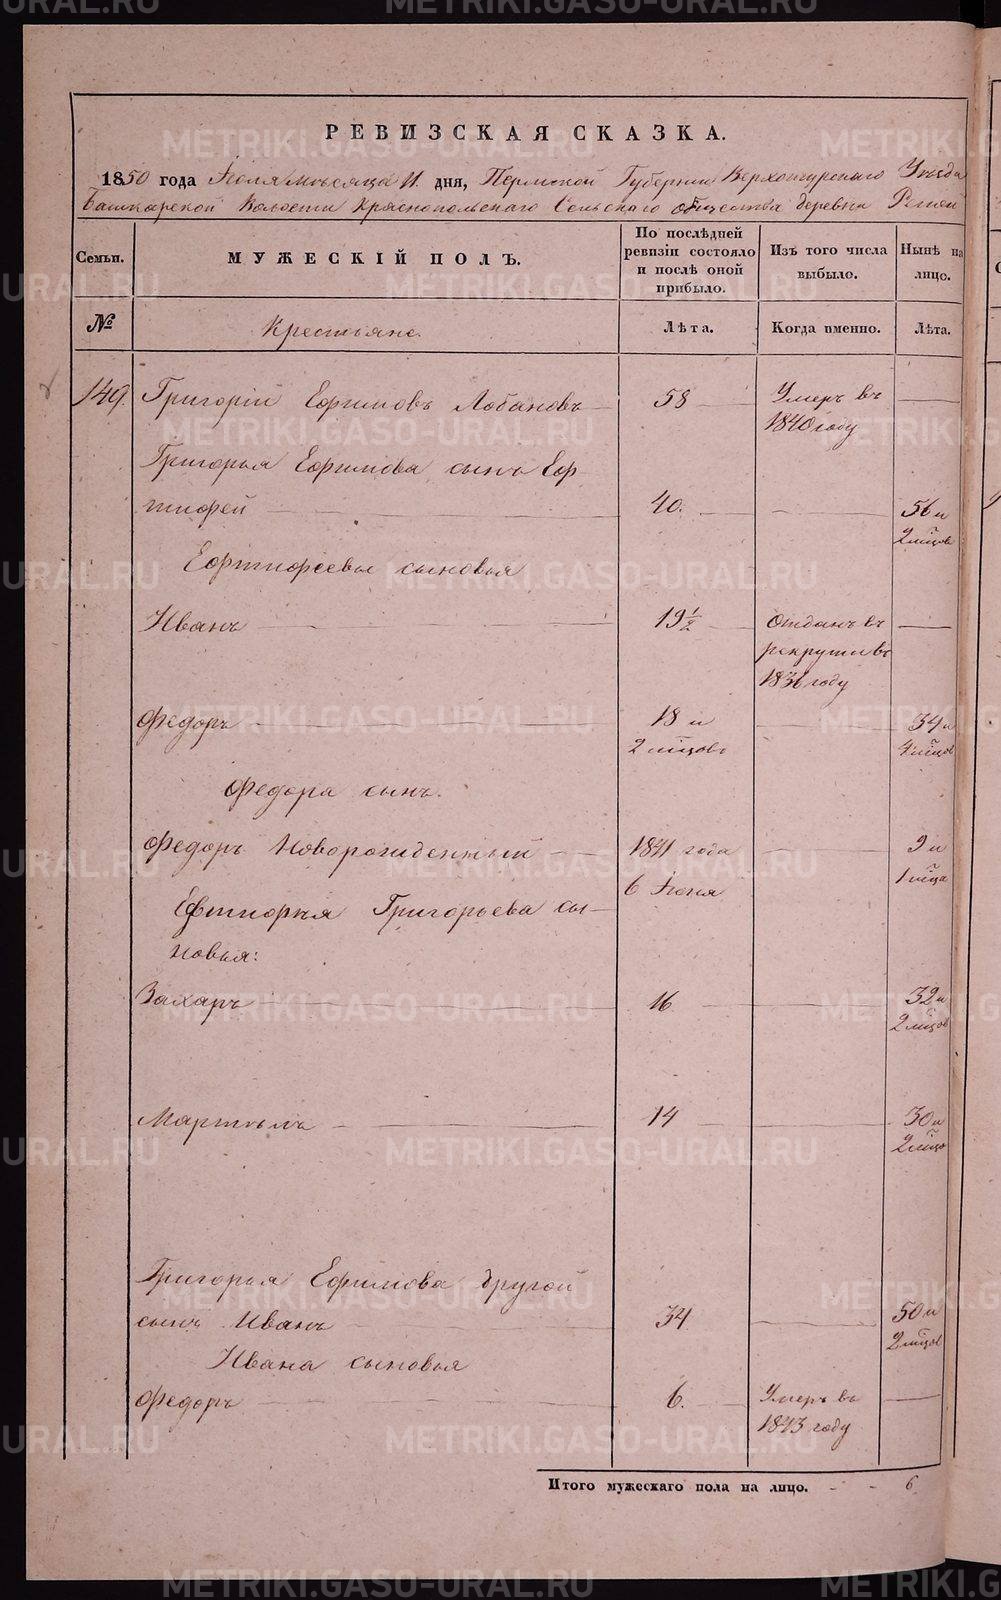 РЕВИЗСКАЯ СКАЗКА.
1850 года Июля месяца 11 дня, Пермской Губернии Верхотурскаго Уезда
Башкарской Волости Краснопольскаго Сельскаго общества деревни
Семьи.
МУЖЕСКІЙ ПОЛЪ.
По послѣдней ревизіи состояло и послѣ оной прибыло.
Изъ того числа выбыло.
Нынѣ на лицо.
№
Крестьяне.
Лѣта.
Когда именно.
Лѣта.
149. Григорій Ефимовъ Лобановъ 58 Умеръ въ
1840 году
Григорья Ефимова сынъ Еф
тифей 40. 56 и
2 мцов
Ефтифеевы сыновья
Иванъ 19½ Отданъ въ
рекруты въ
1836 году
Федоръ 18 и 34 и
2 мцовъ 4 мцов
Федора сынъ.
Федоръ Новорожденный 1841 года 9 и
6 Июня 1 мца
Ефтифья Григорьева сы-
новья:
Захаръ 16 32 и
2 мцов
Мартынъ 14 30 и
2 мцов
Григорья Ефимова другой
сынъ Иванъ 34 50 и
2 мцов
Ивана сыновья
Федоръ 6. Умеръ въ
1843 году
Итого мужескаго пола на лицо. 6
METRIKI.GASO-URAL.RU